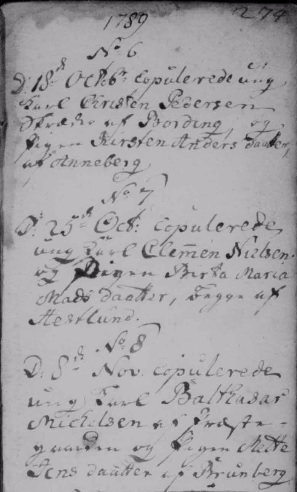 1789
274
No 6
D: 18de Octbr copulerede ung
Karl Christen Pedersen
Skræder af Bording, og
Pigen Kirsten Anders daatter,
af Anneberg.
No 7
D: 25de Oct: copulerede
ung Karl Clem̄en Nielsen
og Pigen Birta Maria
Mads daatter, begge af
Hestlund.
No 8
D: 8de Nov. copulerede
ung Karl Balthasar
Michelsen af Præste-
gaarden og Pigen Mette
Jens daatter af Brunberg